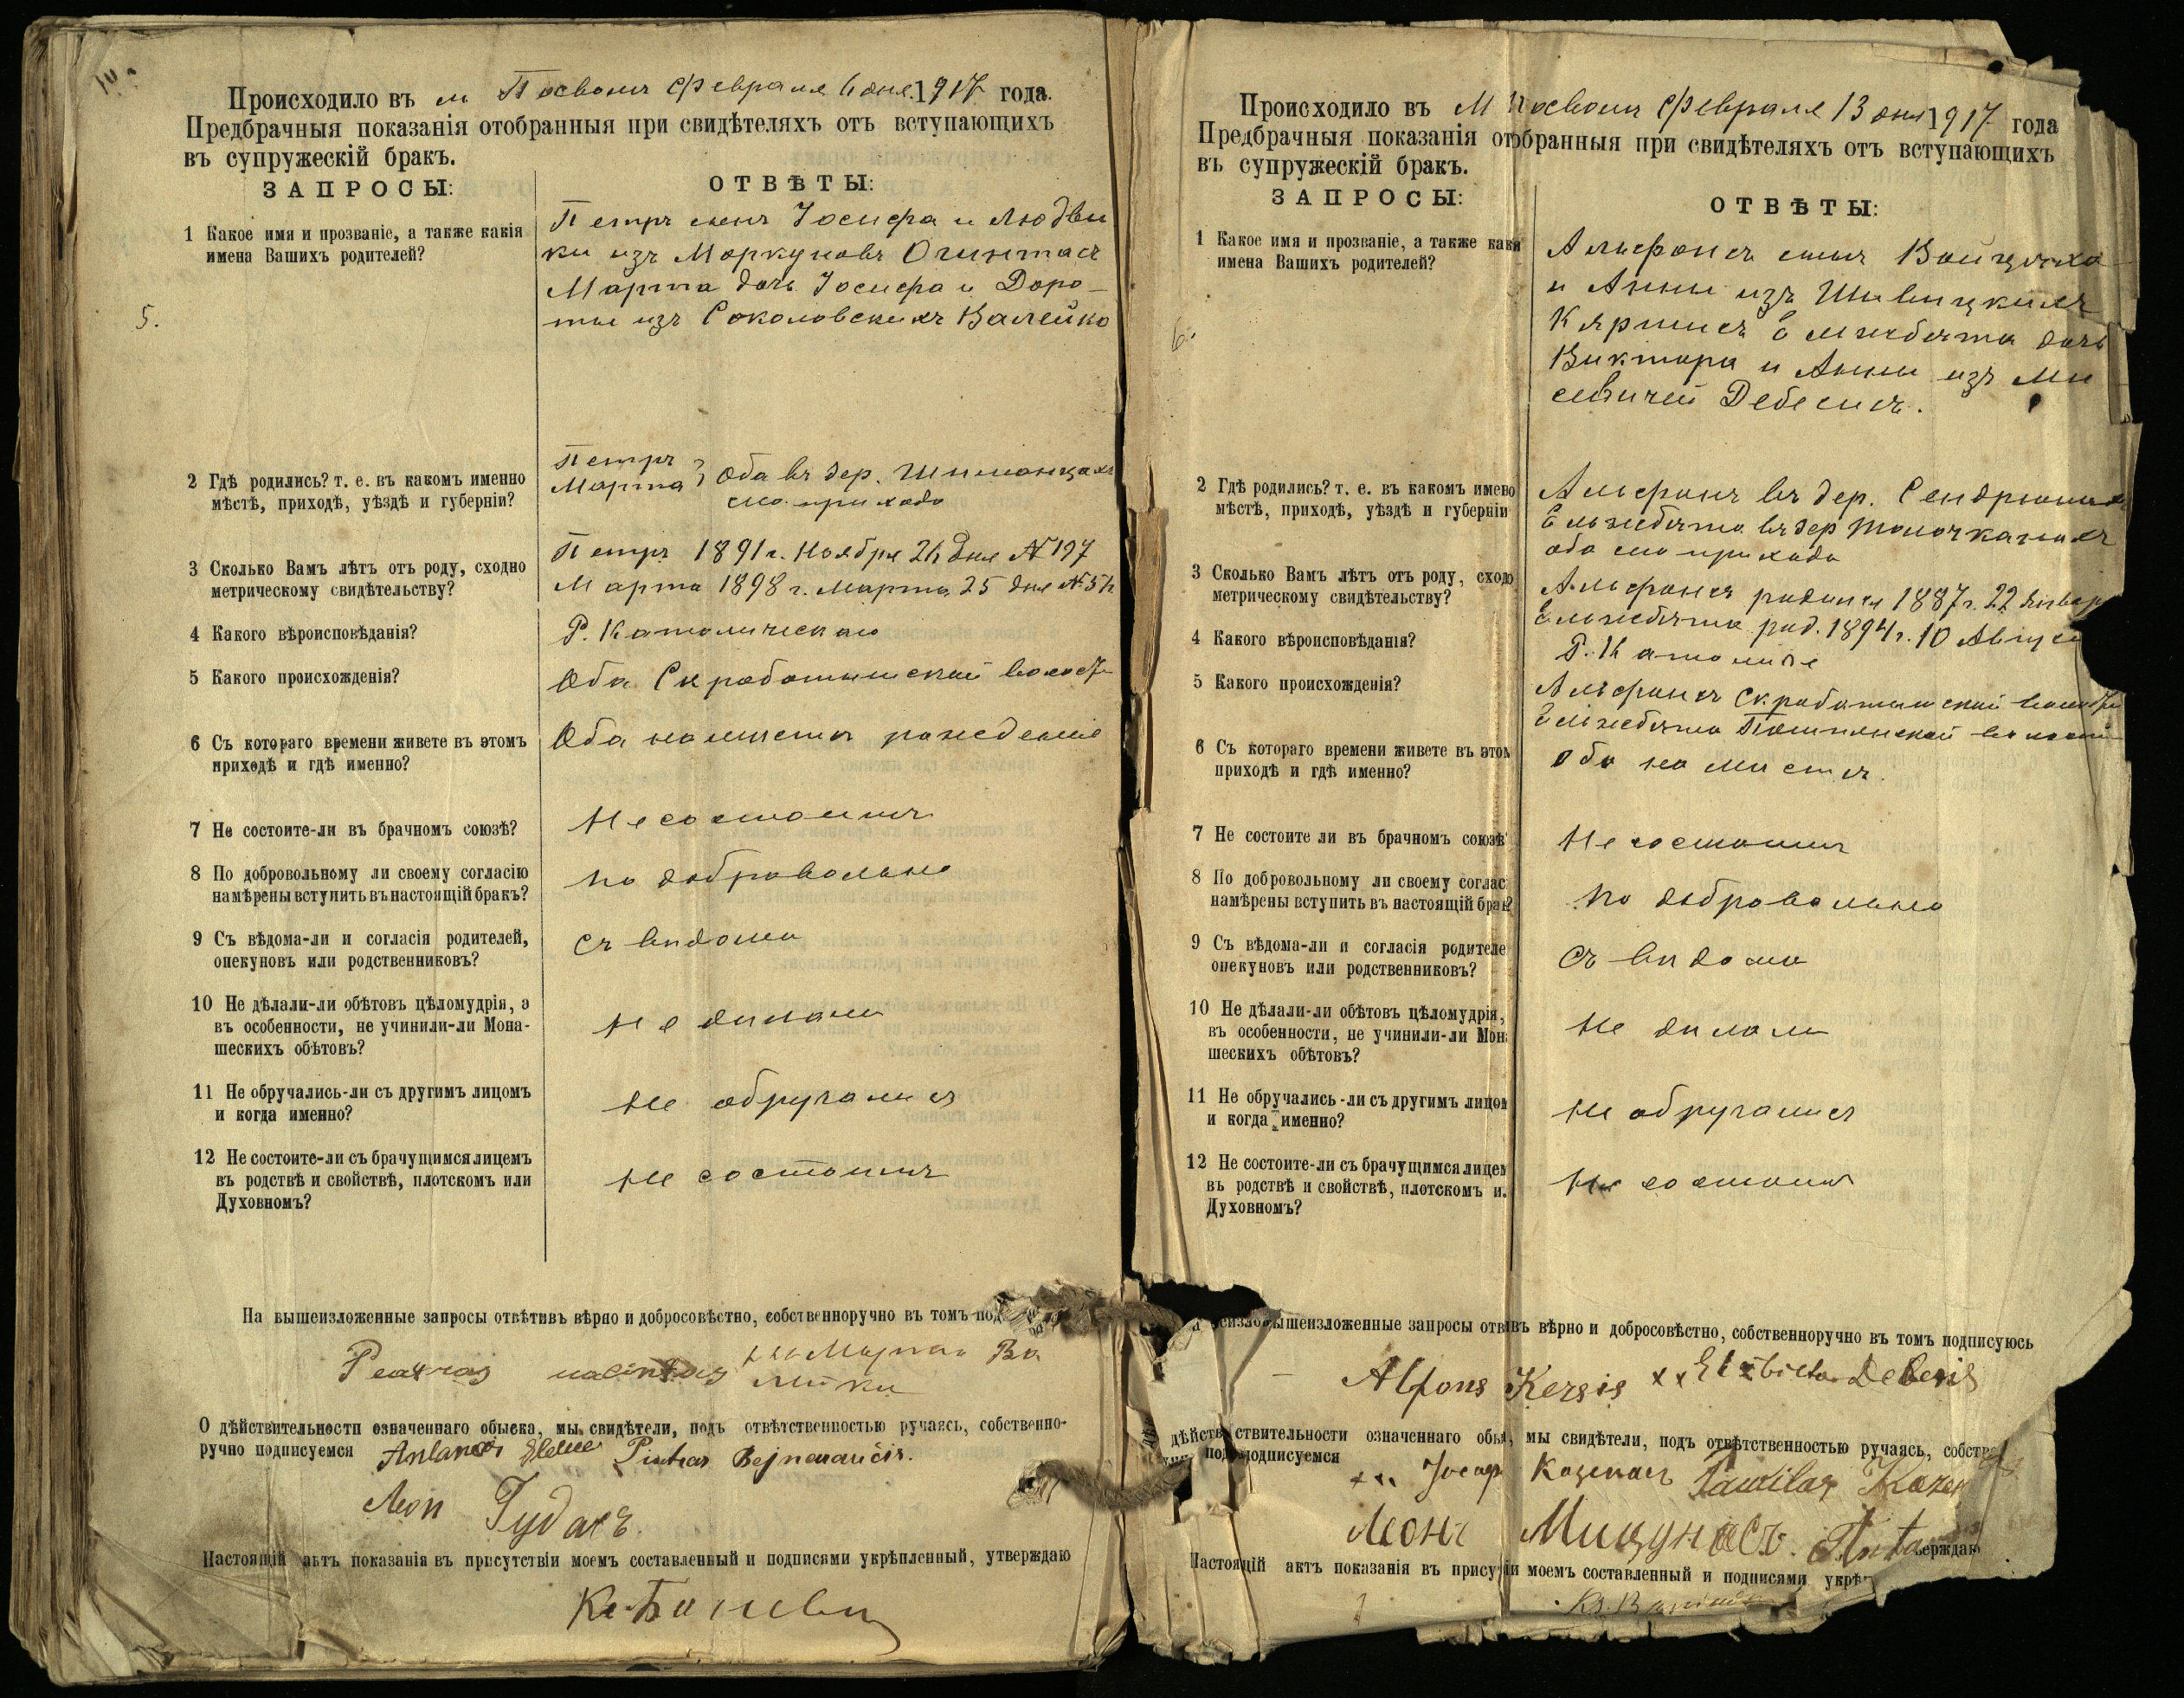 Происходило въ м Посволь Февраля 6 дня 1917 года.
Предбрачныя показанія отобранныя при свидѣтеляхъ отъ вступающихъ
въ супружескій бракъ.
ЗАПРОСЫ:
ОТВѢТЫ:
5.
1 Какое имя и прозваніе, а также какія
имена Вашихъ родителей?
Петръ сынъ Іосифа и Людви
ки изъ Моркуновъ
Марта дочь Іосифа и Доро-
ты изъ Соколовскихъ Валейко
2 Гдѣ родились? т. е. въ какомъ именно
мѣстѣ, приходѣ, уѣздѣ и губерніи?
Петръ
Марта
Оба въ дер.
сго прихода
3 Сколько Вамъ лѣтъ отъ роду, сходно
метрическому свидѣтельству?
Петръ 1891 г. Ноября 26 дня № 197
Марта 1898 г. Марта 25 дня №
4 Какого вѣроисповѣданія?
Р. Католическаго
5 Какого происхожденія?
Оба Скработышской волости
6 Съ котораго времени живете въ этомъ
приходѣ и гдѣ именно?
Оба на мѣстѣ рожденія
7 Не состоите-ли въ брачномъ союзѣ?
Не состоимъ
8 По добровольному ли своему согласію
намѣрены вступить въ настоящій бракъ?
По добровольно
9 Съ вѣдома-ли и согласія родителей,
опекуновъ или родственниковъ?
Съ видома
10 Не дѣлали-ли обѣтовъ цѣломудрія, а
въ особенности, не учинили-ли Мона-
шескихъ обѣтовъ?
Не дилали
11 Не обручались-ли съ другимъ лицомъ
и когда именно?
Не обручались
12 Не состоите-ли съ брачущимся лицемъ
въ родствѣ и свойствѣ, плотскомъ или
Духовномъ?
Не состоимъ
На вышеизложенные запросы отвѣтивъ вѣрно и добросовѣстно, собственноручно въ томъ под
Марта Ва
лейко
О дѣйствительности означеннаго обыска, мы свидѣтели, подъ отвѣтственностью ручаясь, собственно-
ручно подписуемся
Леон Гудасъ
Настоящій актъ показанія въ присутствіи моемъ составленный и подписями укрѣпленный, утверждаю
Происходило въ М Посволь Февраля 13 дня 1917 года
Предбрачныя показанія отобранныя при свидѣтеляхъ отъ вступающихъ
въ супружескій бракъ.
ЗАПРОСЫ:
ОТВѢТЫ:
6.
1 Какое имя и прозваніе, а также какія
имена Вашихъ родителей?
Альфонсъ сынъ Войцѣха
и Анны изъ Шивицкихъ
Кяршисъ Ельжбета дочь
Виктора и Анны изъ Ми
севичей Дебесисъ.
2 Гдѣ родились? т. е. въ какомъ имено
мѣстѣ, приходѣ, уѣздѣ и губерніи
Альфонсъ въ дер.
Ельжбета въ дер
оба сго прихода
3 Сколько Вамъ лѣтъ отъ роду, сходо
метрическому свидѣтельству?
Альфонсъ родился 1887 г. 22 Январ
Ельжбета род. 1894 г. 10 Августа
4 Какого вѣроисповѣданія?
Р. Католики
5 Какого происхожденія?
Альфонсъ Скработышской волости
Ельжбета волости
6 Съ котораго времени живете въ этом
приходѣ и гдѣ именно?
Оба на мистѣ.
7 Не состоите ли въ брачномъ союзѣ
Не состоимъ
8 По добровольному ли своему соглас
намѣрены вступить въ настоящій брак?
По добровольно
9 Съ вѣдома-ли и согласія родителе
опекуновъ или родственниковъ?
Съ видома
10 Не дѣлали-ли обѣтовъ цѣломудрія,
въ особенности, не учинили-ли Мон
шескихъ обѣтовъ?
Не дилали
11 Не обручались-ли съ другимъ лицом
и когда именно?
Не обручались
12 Не состоите-ли съ брачущимся лицем
въ родствѣ и свойствѣ, плотскомъ и
Духовномъ?
Не состоимъ
вышеизложенные запросы отвѣтивъ вѣрно и добросовѣстно, собственноручно въ томъ подписуюсь
Alfons Kersis xx Elzbieta Debesis
дѣйствительности означеннаго обы, мы свидѣтели, подъ отвѣтственностью ручаясь, собств
подписуемся
xx Іосиф
Леонъ Мицунасъ.
Настоящій актъ показанія въ присутствіи моемъ составленный и подписями укрѣ верждаю